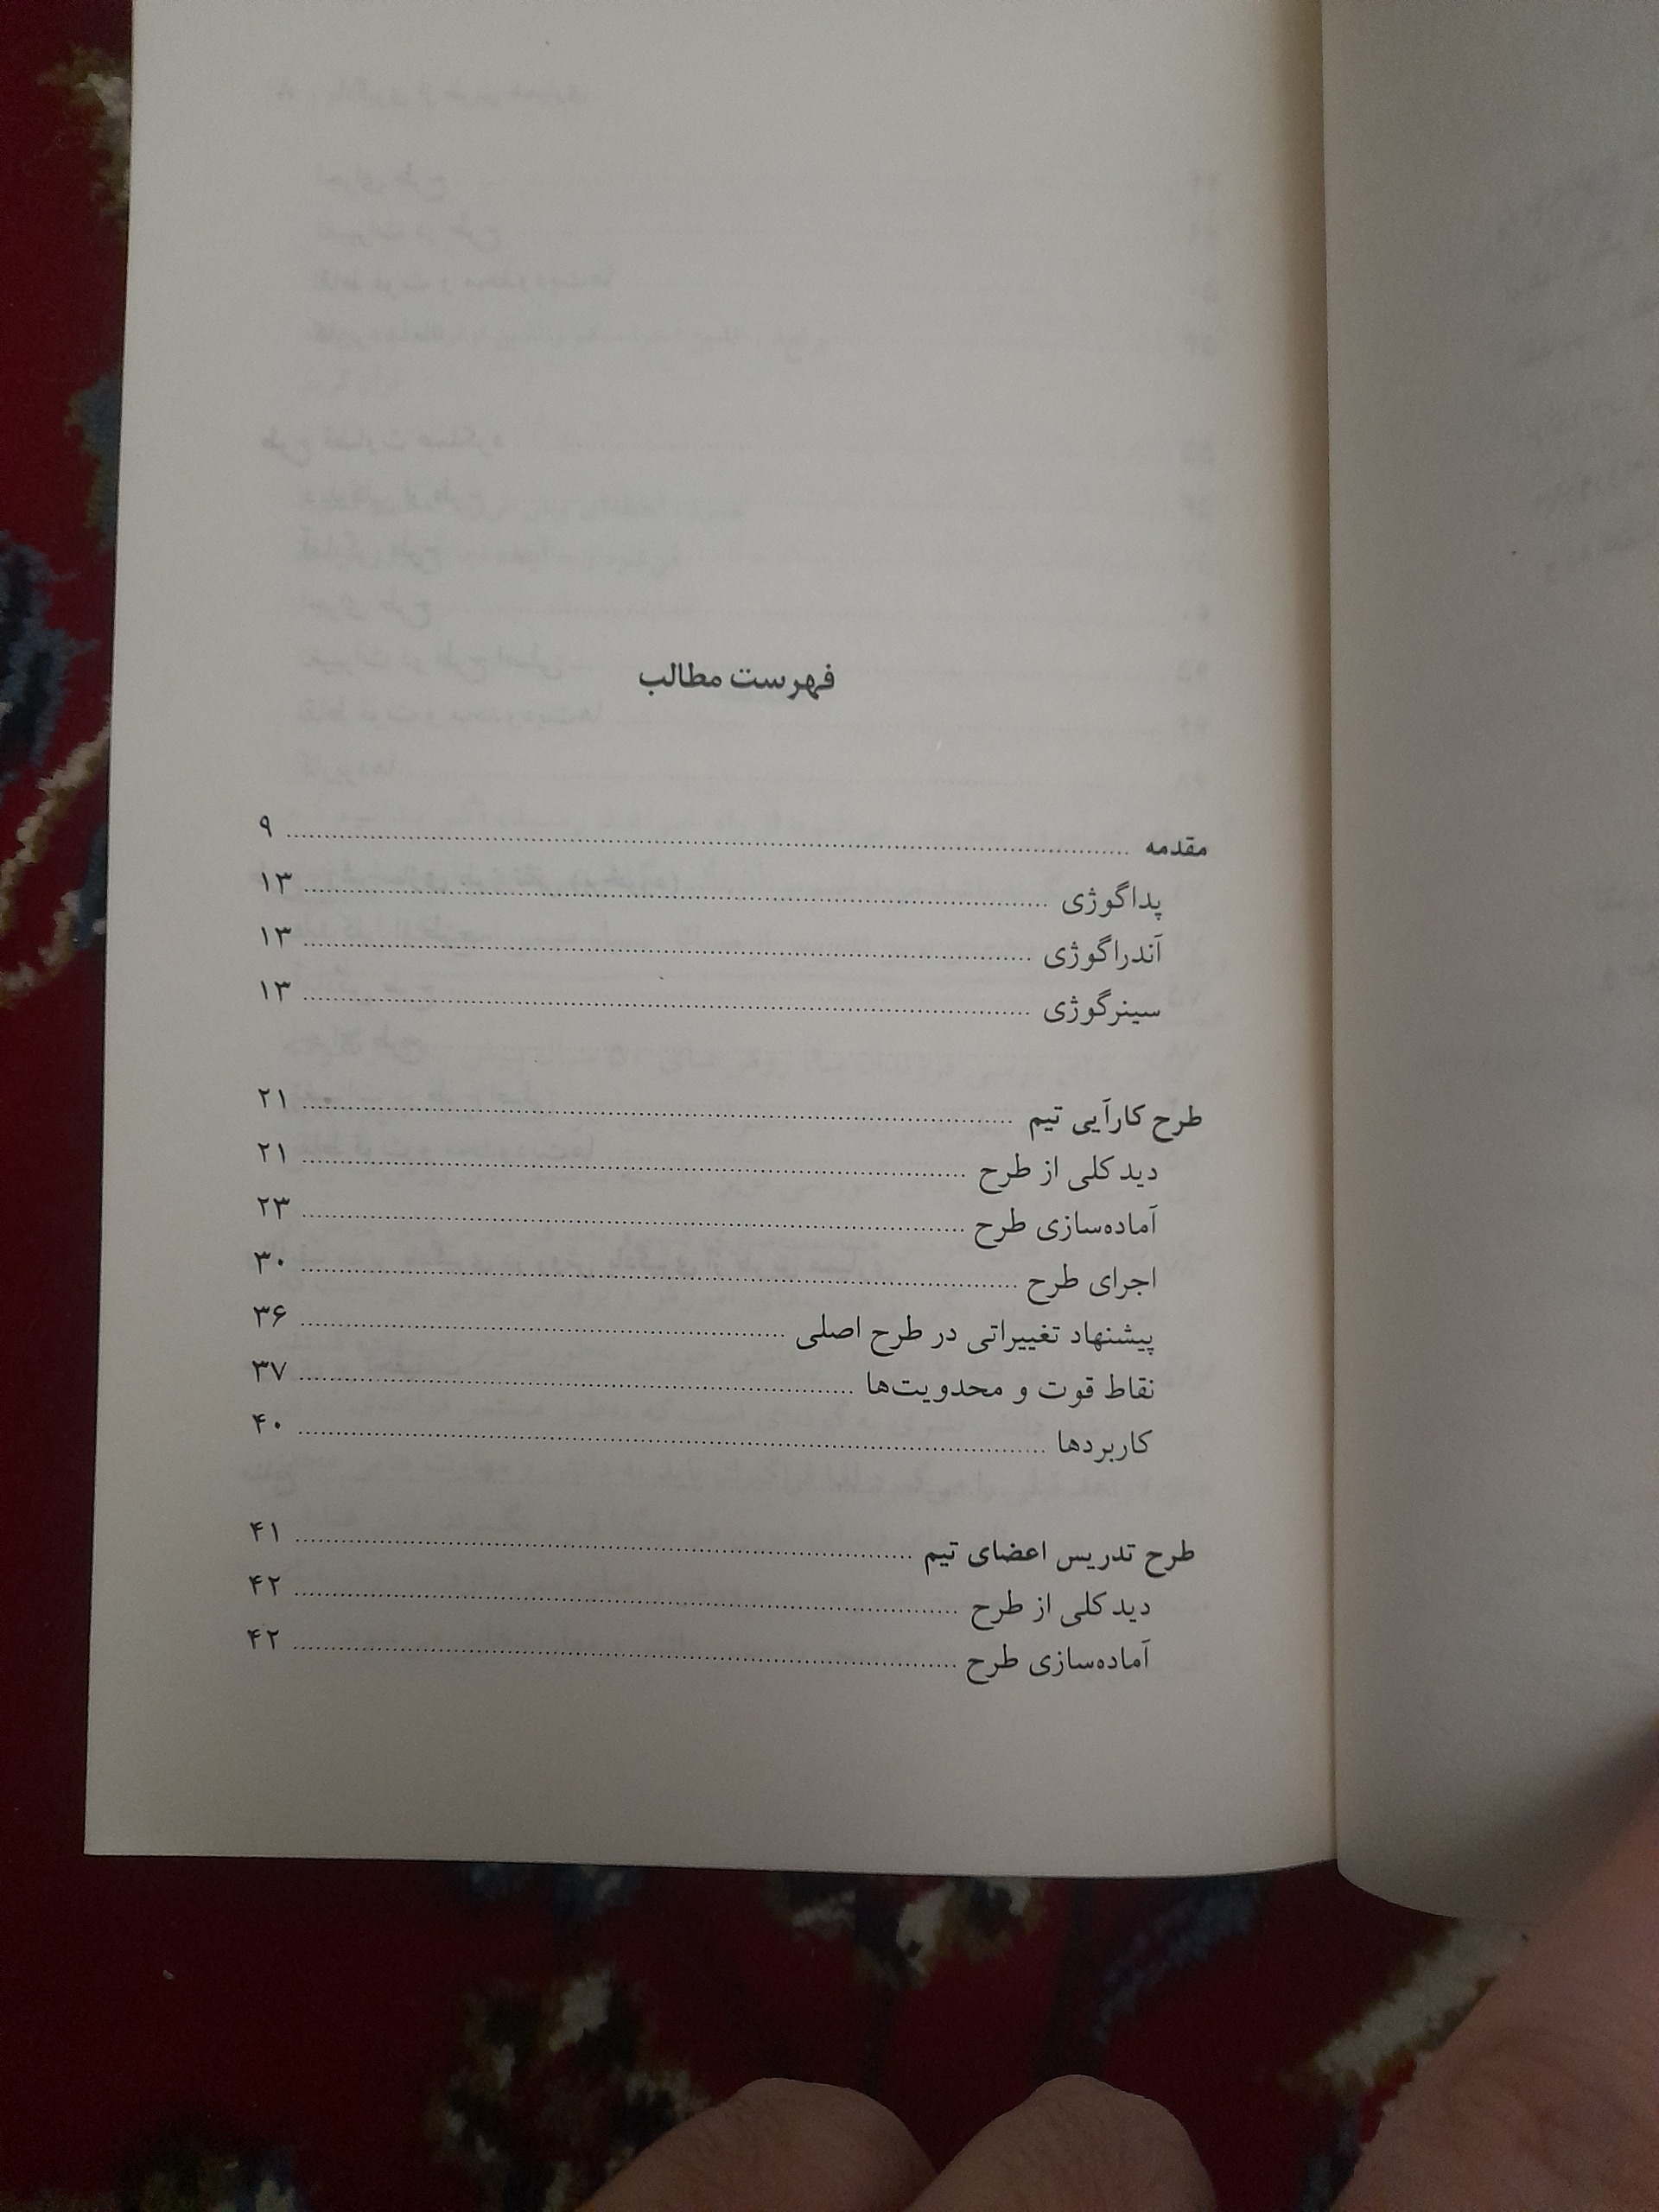 فهرست مطالب
مقدمه ........ ۹
پداگوژی ........ ۱۳
آندراگوژی ........ ۱۳
سینرگوژی ........ ۱۳
طرح کارآیی تیم ........ ۲۱
دید کلی از طرح ........ ۲۱
آماده‌سازی طرح ........ ۲۳
اجرای طرح ........ ۳۰
پیشنهاد تغییراتی در طرح اصلی ........ ۳۶
نقاط قوت و محدویت‌ها ........ ۳۷
کاربردها ........ ۴۰
طرح تدریس اعضای تیم ........ ۴۱
دید کلی از طرح ........ ۴۲
آماده‌سازی طرح ........ ۴۲